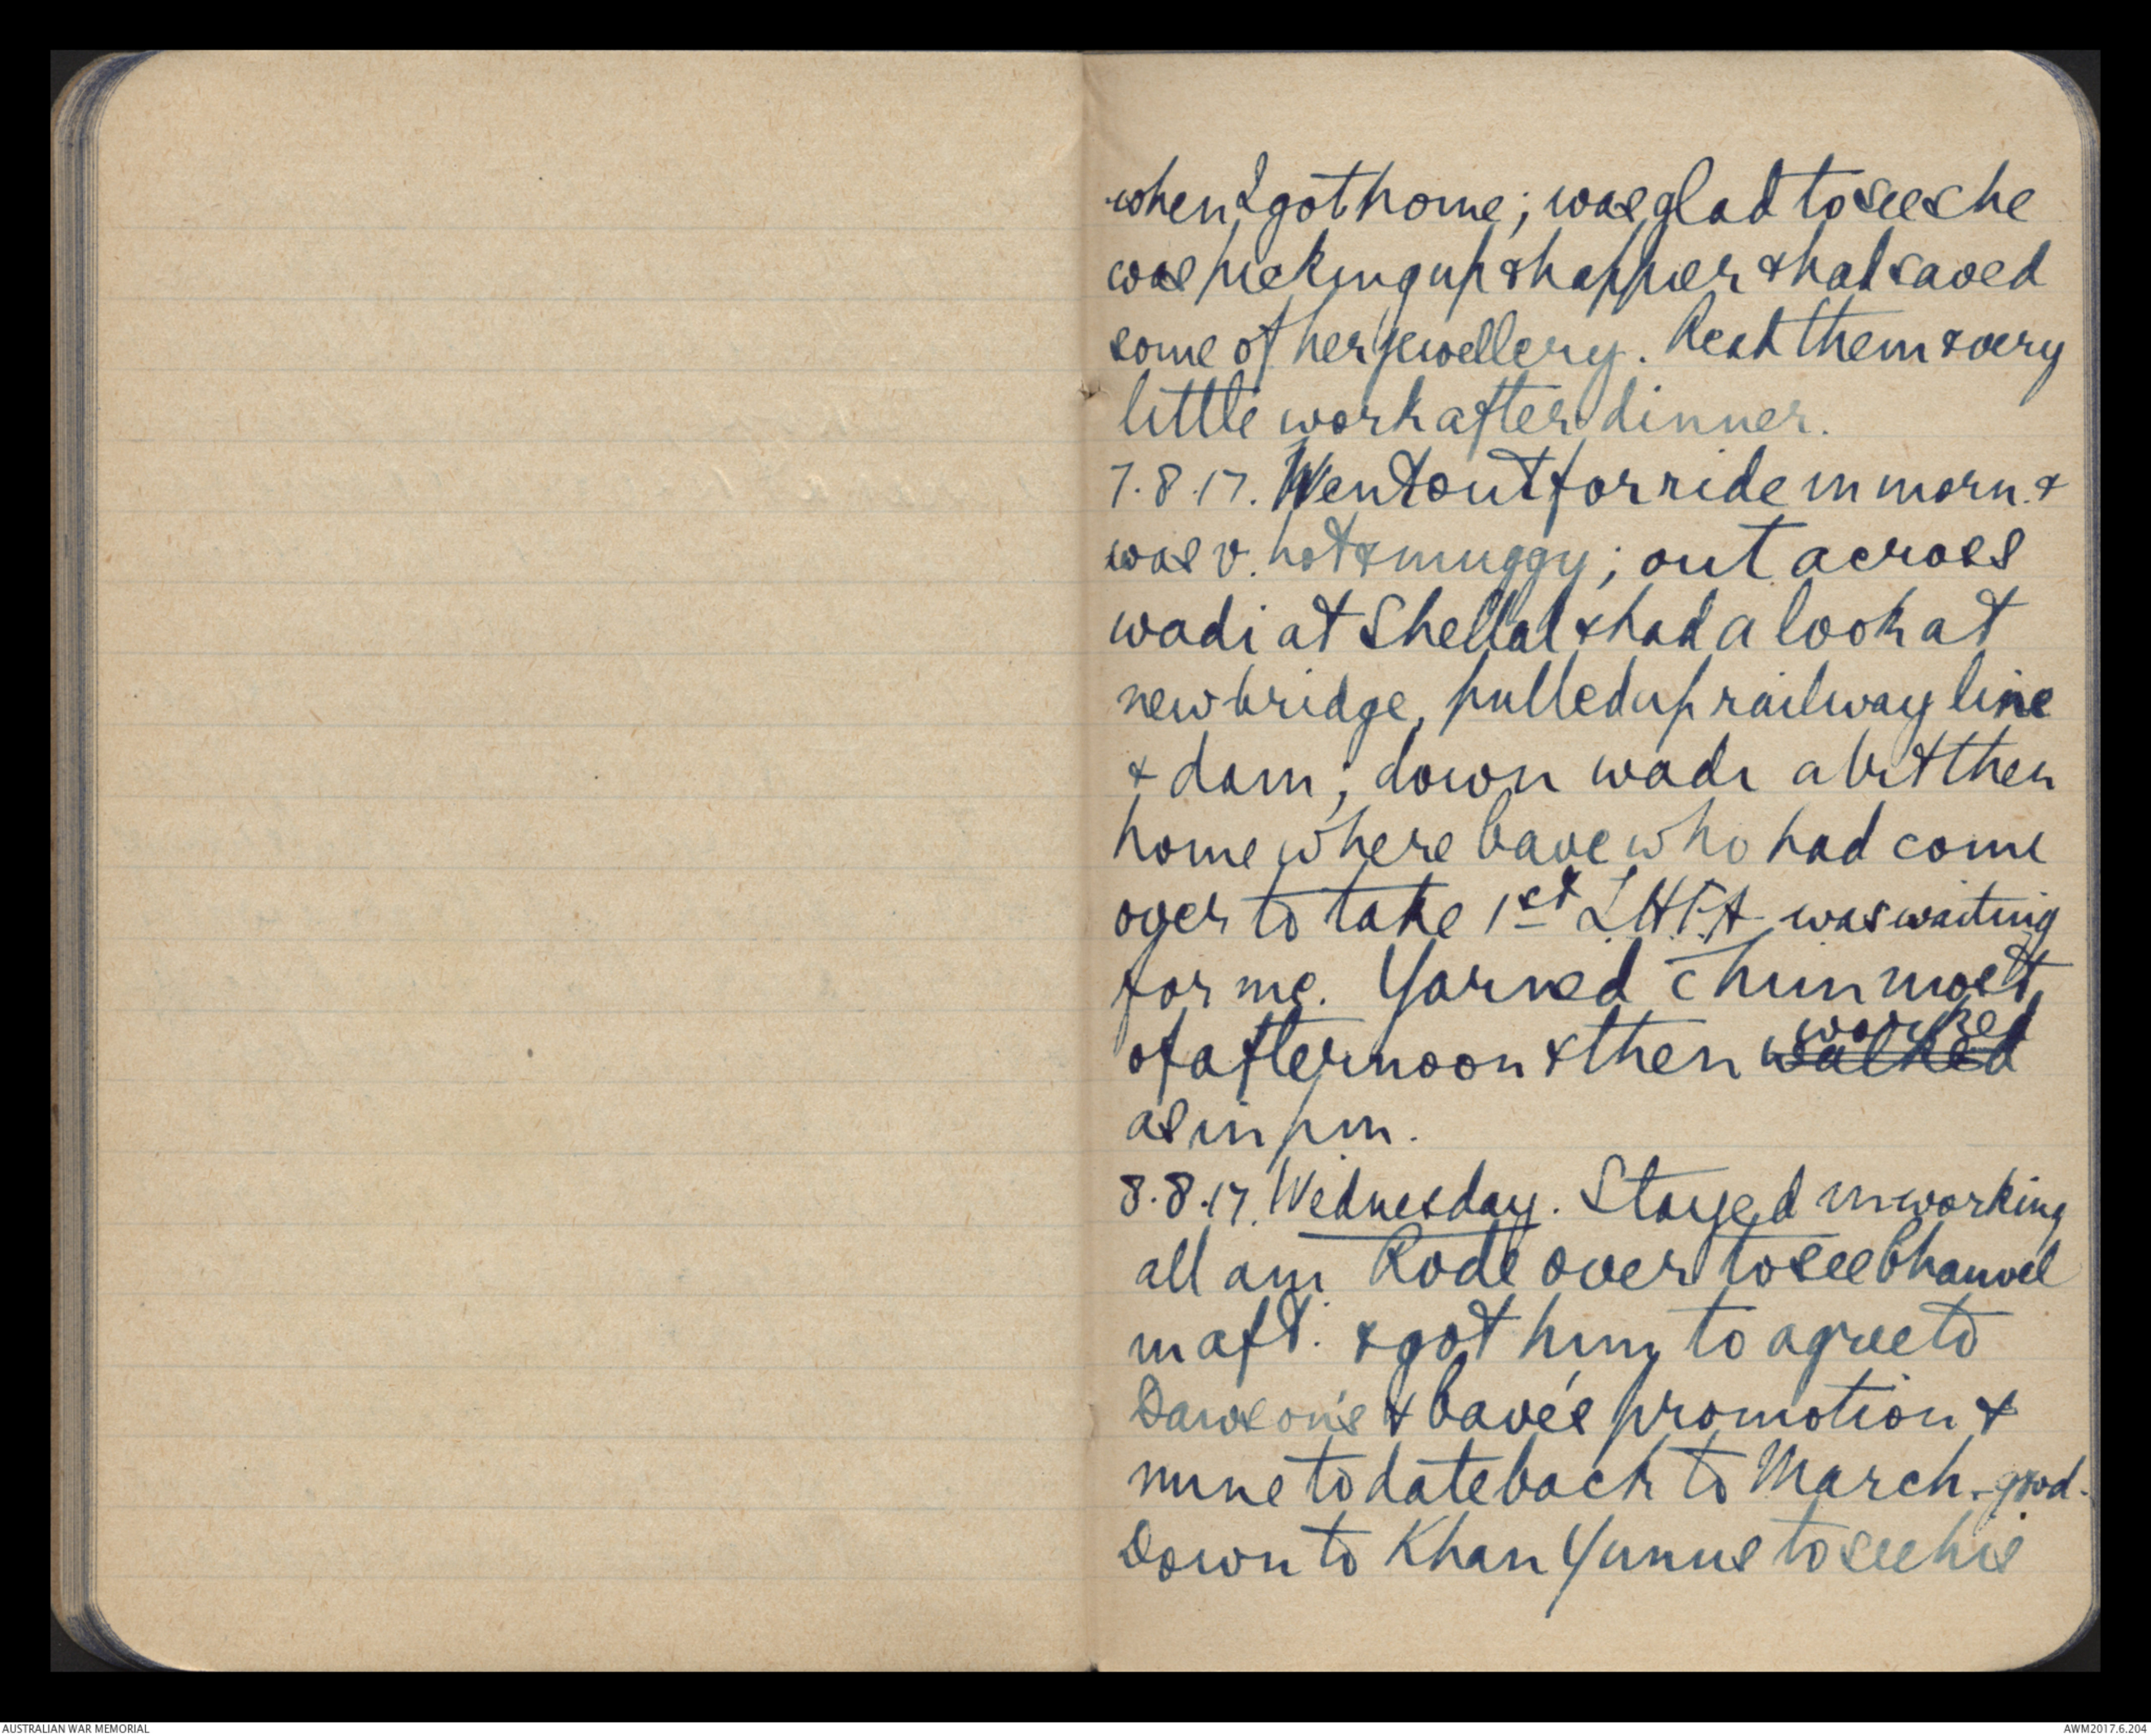 when I got home; was glad to see she
was picking up & happier & had saved
some of her jewellery. Read them & very
little work after dinner.
7.8.17. Went out for ride in morn. &
was v. hot & muggy; out across
wadi at Shellal & had a look at
new bridge, pulled up railway line
& dam; down wadi a bit & then
home where Cave who had come
over to take 1st L.H.F.A. was waiting
for me. Yarned c̄ him most
of afternoon & then walked worked
as in pm.
8.8.17. Wednesday. Stayed in working
all am. Rode over to see Chauvel
in aft. & got him to agree to
Dawson's & Cave's promotion &
mine to date back to March. - good.
Down to Khan Yunus to see his
AUSTRALIAN WAR MEMORIAL
AWM2017.6.204